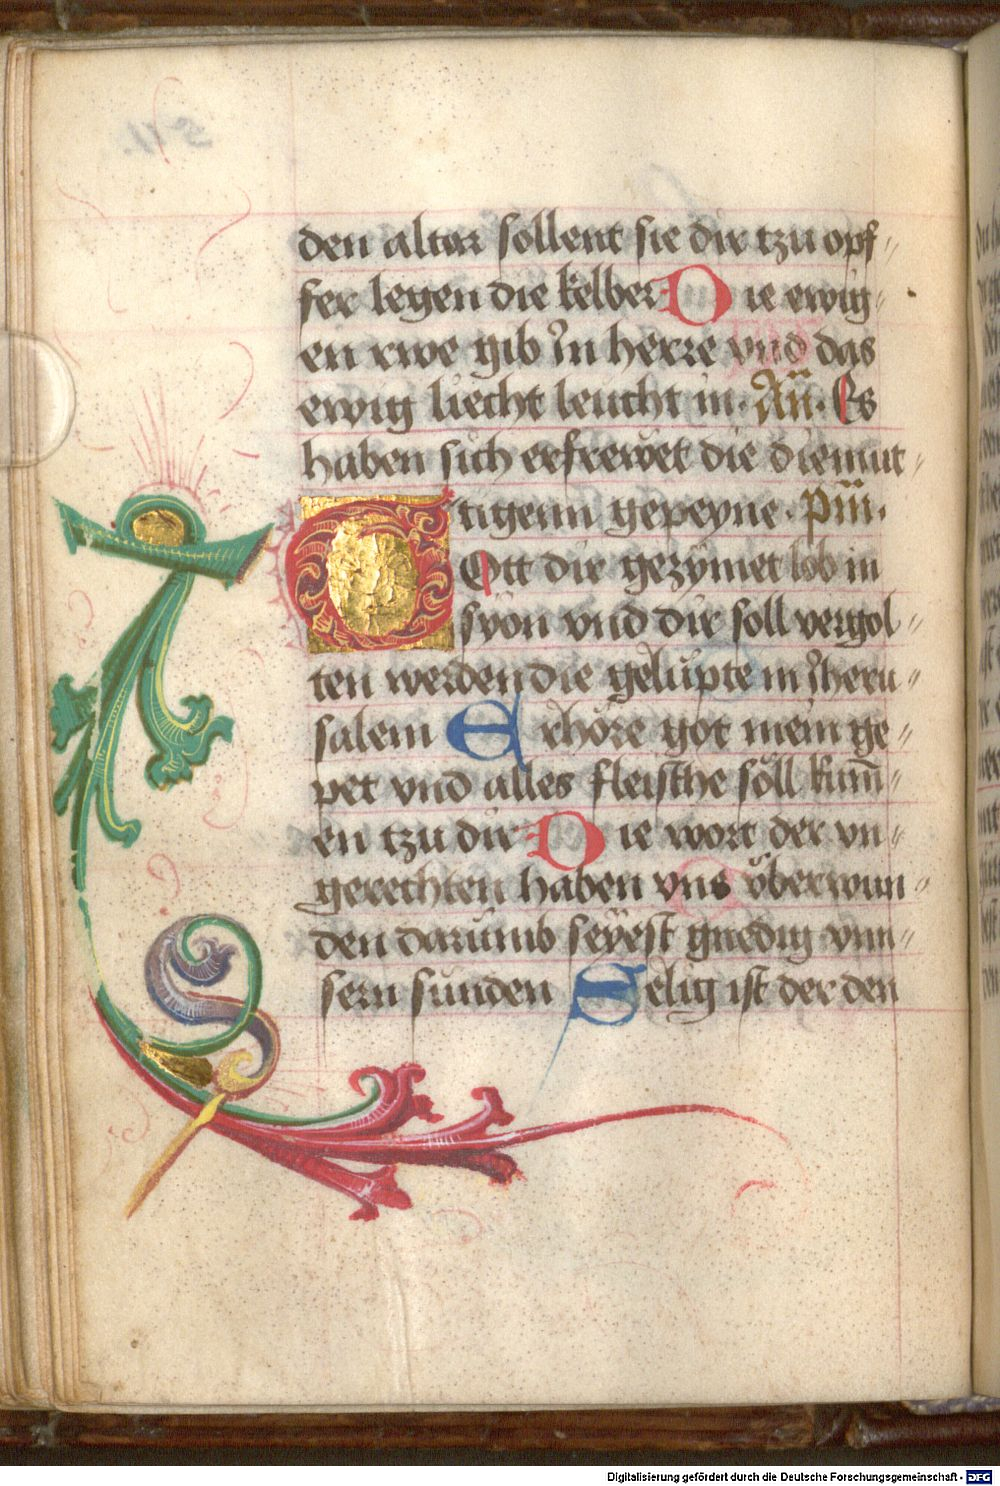 den altar sollent sie dir tzu opf〃
fer legen die kelber Die ewig〃
en rwe gib In herre vnd das
ewig liecht leucht in. Añ. Es
haben sich erfrewet die diemut〃
tigenn gepeyne. Pm̄.
Gott dir gezymet lob in
syon vnd dir soll vergol〃
ten werden die gelupte in Iheru〃
salem Erhöre got mein ge〃
pet vnd alles fleisthe soll kum̄〃
en tzu dir Die wort der vn〃
gerechten haben vns überwun〃
den darumb seyest gnedig vnn〃
sern sunden Selig ist der den
Digitalisierung gefördert durch die Deutsche Forschungsgemeinschaft - DFG